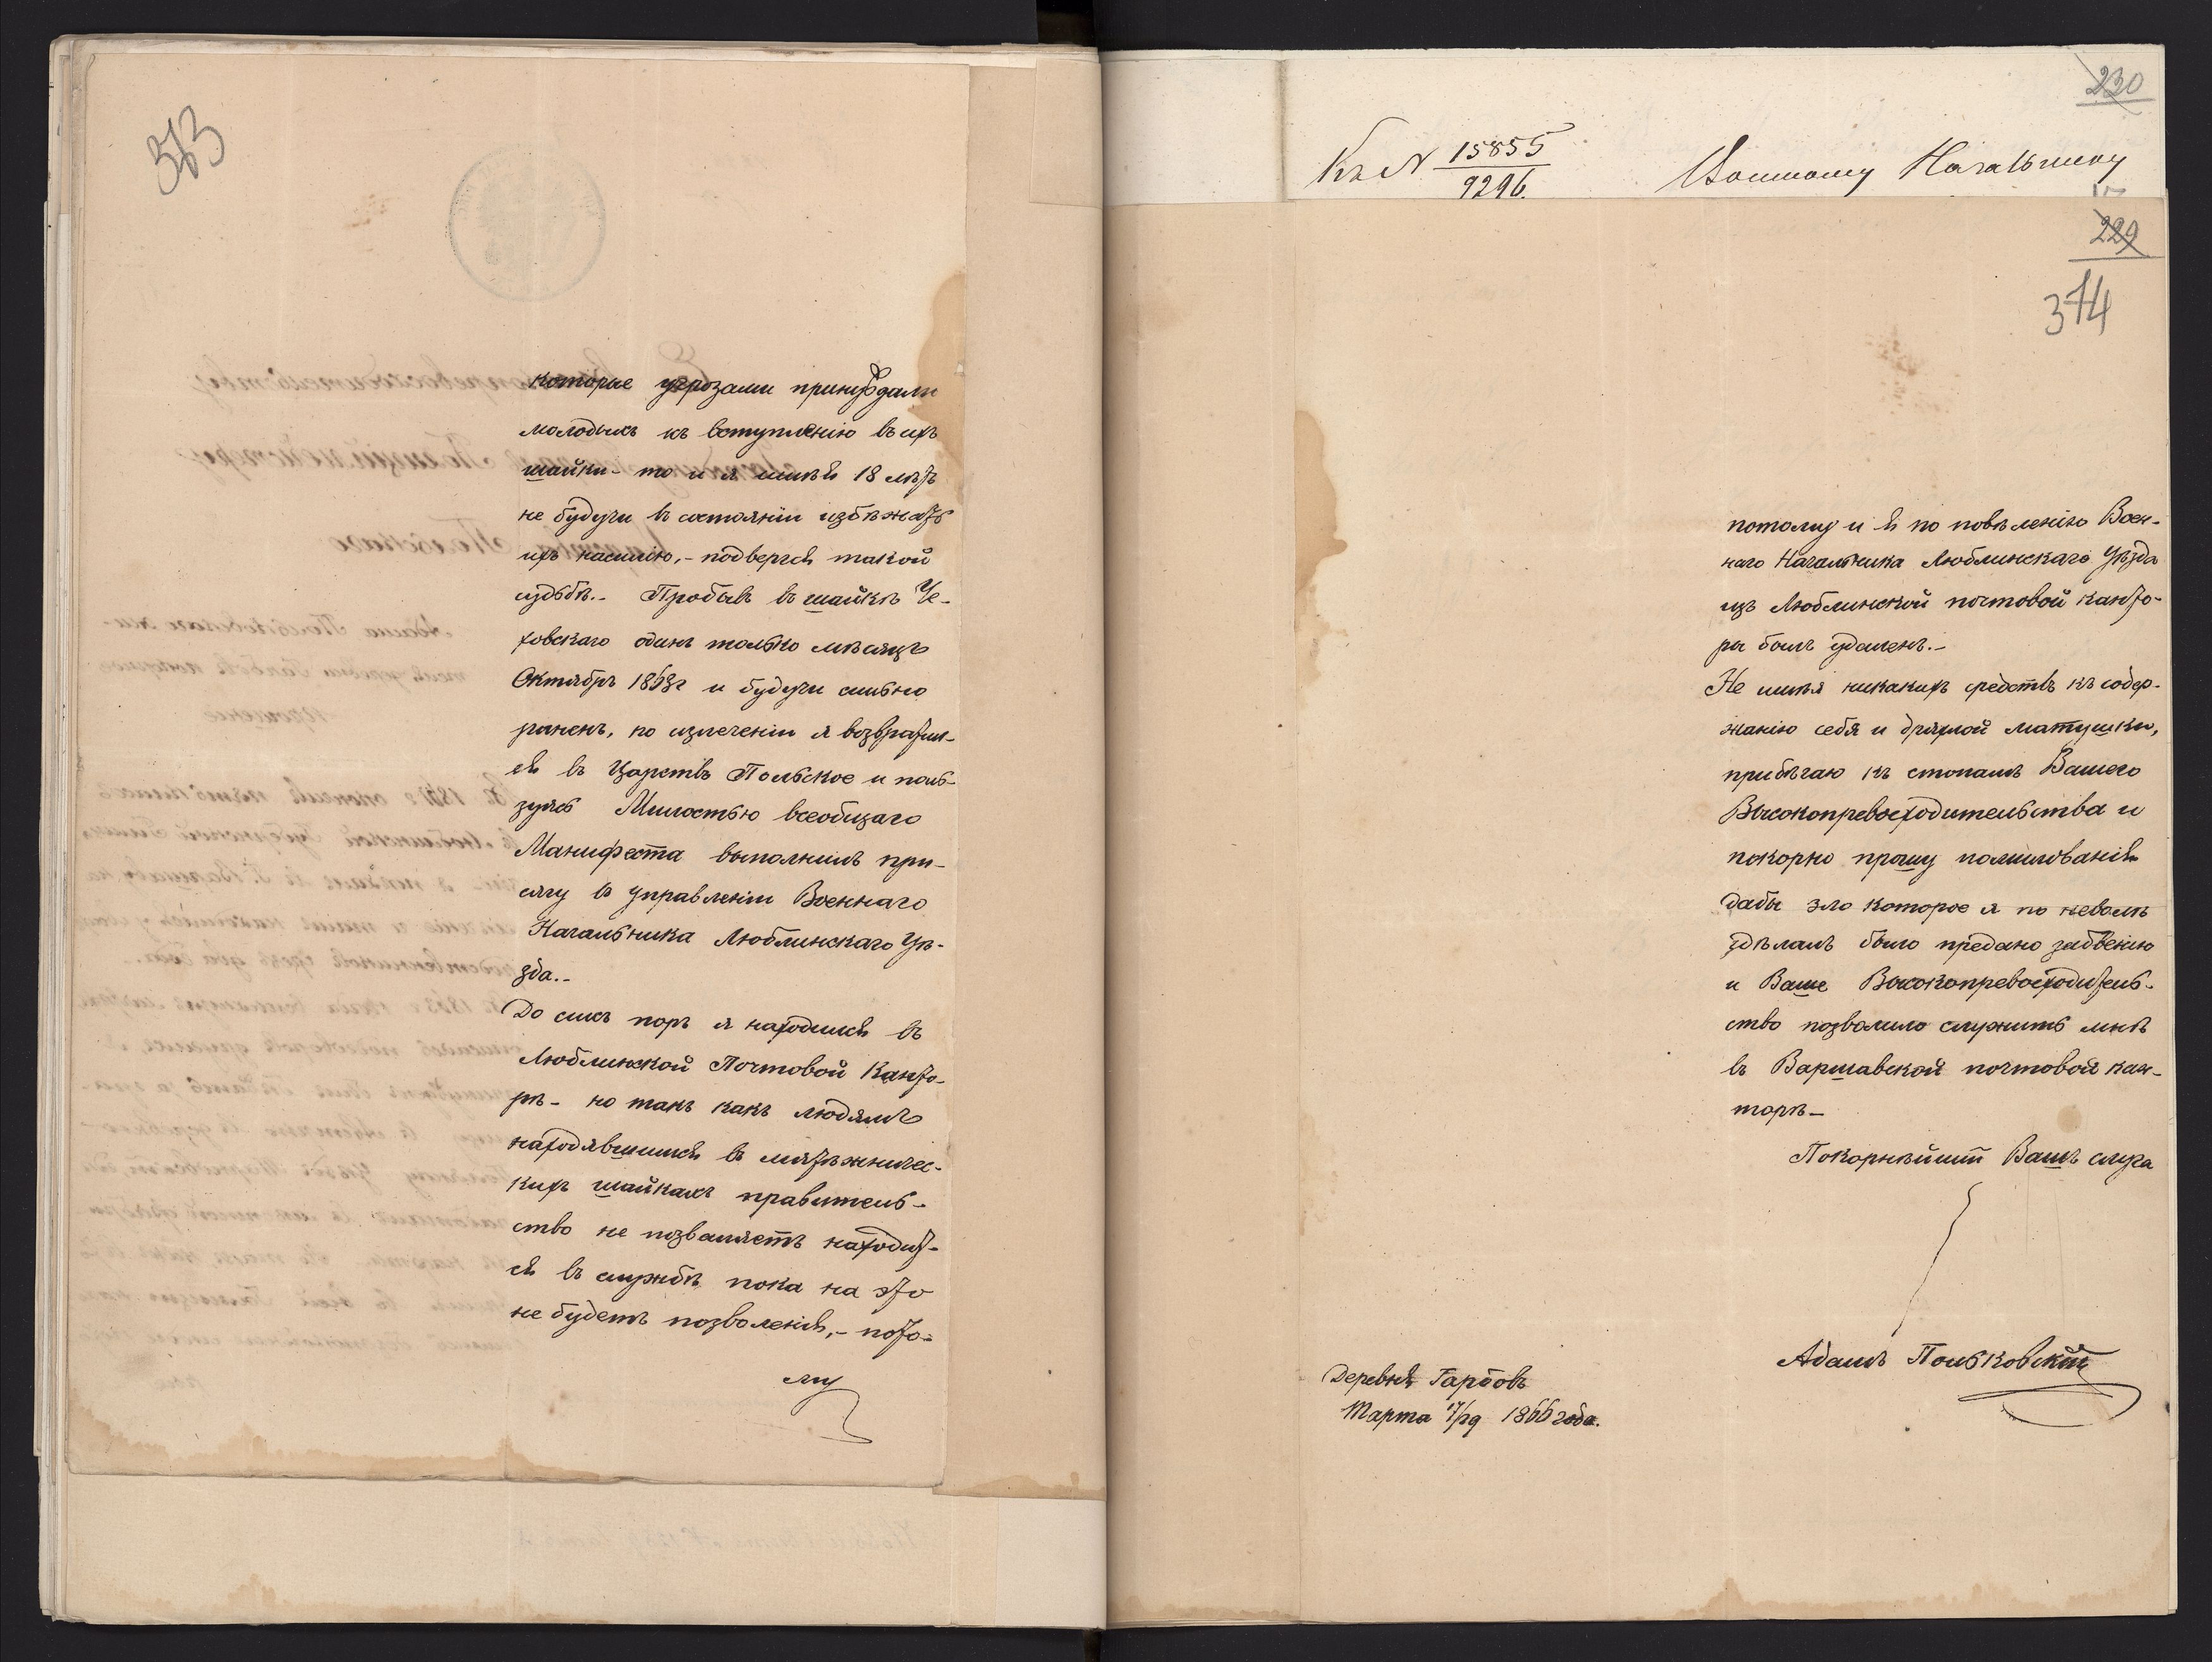 373
которые угрозами принуждали
молодыхъ къ вступленію въ ихъ
шайки – то и я имѣя 18 лѣтъ
не будучи въ состояніи избѣжать
ихъ насилію, – подвергся такой
судьбѣ. – Пробывъ въ шайкѣ Че-
ховскаго одинъ только мѣсяцъ
Октябрь 1863 г и будучи сильно
раненъ, по излеченіи я возвратил-
ся въ Царствъ Польское и поль-
зуясь Милостью всеобщаго
Манифеста выполнилъ при-
сягу въ управленіи Военнаго
Начальника Люблинскаго Уѣ-
зда. –
До сихъ поръ я находился въ
Люблинской Почтовой Канто-
рѣ – но такъ какъ людямъ
находявшимся въ мятѣжничес-
кихъ шайкахъ правитель-
ство не позваляетъ находит-
ся въ службѣ пока на это
не будетъ позволенія, – пото-
му
230
Къ № 15855
9296.
Военному Начальнику
229
374
потому и я по повѣленію Воен-
наго Начальника Люблинскаго Уѣзда
изъ Люблинской почтовой канто-
ры былъ удаленъ. –
Не имѣя никакихъ средствъ къ содер-
жанію себя и дряхлой матушки,
прибѣгаю къ стопамъ Вашего
Высокопревосходительства и
покорно прошу помилованія
дабы зло которое я по неволѣ
здѣлалъ было предано забвенію
и Ваше Высокопревосходитель-
ство позволило служить мнѣ
въ Варшавской почтовой кан-
торѣ –
Покорнѣйшій Вашъ слуга
Адамъ Польковскій
Деревня Гарбовъ
Марта 17/29 1866 года.